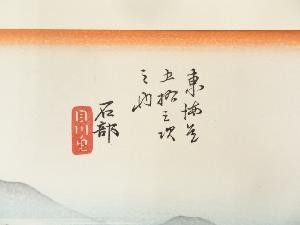 東海道
五拾三次
之内
石部
目川里